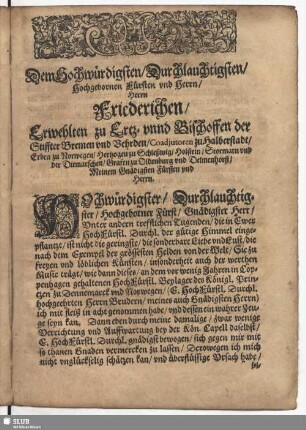 Dem Hochwürdigsten/ Durchlauchtigsten/
Hochgebornen Fürsten vnd Herrn/
Herrn
Friederichen/
Erwehlten zu Ertz- vnnd Bischoffen der
Stiffter Bremen vnd Vehrden/ Coadjutoren zu Halberstadt/
Erben zu Norwegen/ Hertzogen zu Schleßwig/ Holstein/ Stormarn vnd
der Ditmarschen/ Grafen zu Oldenburg vnd Delmenhorst/
Meinem Gnädigsten Fürsten vnd
Herrn.
HOchwürdigster/ Durchlauchtig-
ster/ Hochgeborner Fürst/ Gnädigster Herr/
Vnter andern trefflichen Tugenden/ die in Ewer
HochFürstl. Durchl. der gütige Himmel einge
pflantzt/ ist nicht die geringste/ die sonderbare Liebe vnd Lust/ die
nach dem Exempel der grössesten Helden von der Welt/ Sie zu
freyen vnd löblichen Künsten/ insonderheit auch der werthen
Music trägt/ wie dann dieses/ an dem vor wenig Jahren in Cop-
penhagen gehaltenen HochFürstl. Beylager des Königl. Prin-
tzen zu Dennemarck vnd Norwegen/ E. HochFürstl. Durchl.
hochgeehrten Herrn Brudern/ meines auch Gnädigsten Herrn/
ich mit fleiß in acht genommen habe/ vnd dessen ein wahrer Zeu-
ge seyn kan. Dann eben durch meine damalige/ zwar wenige
Verrichtung vnd Auffwartung bey der Kön. Capell daselbst/
E. HochFürstl. Durchl. gnädigst bewogen/ sich gegen mir mit
so thanen Gnaden vermercken zu lassen/ Derowegen ich mich
nicht vnglückselig schätzen kan/ vnd überflüssige Vrsach habe/
SLUB